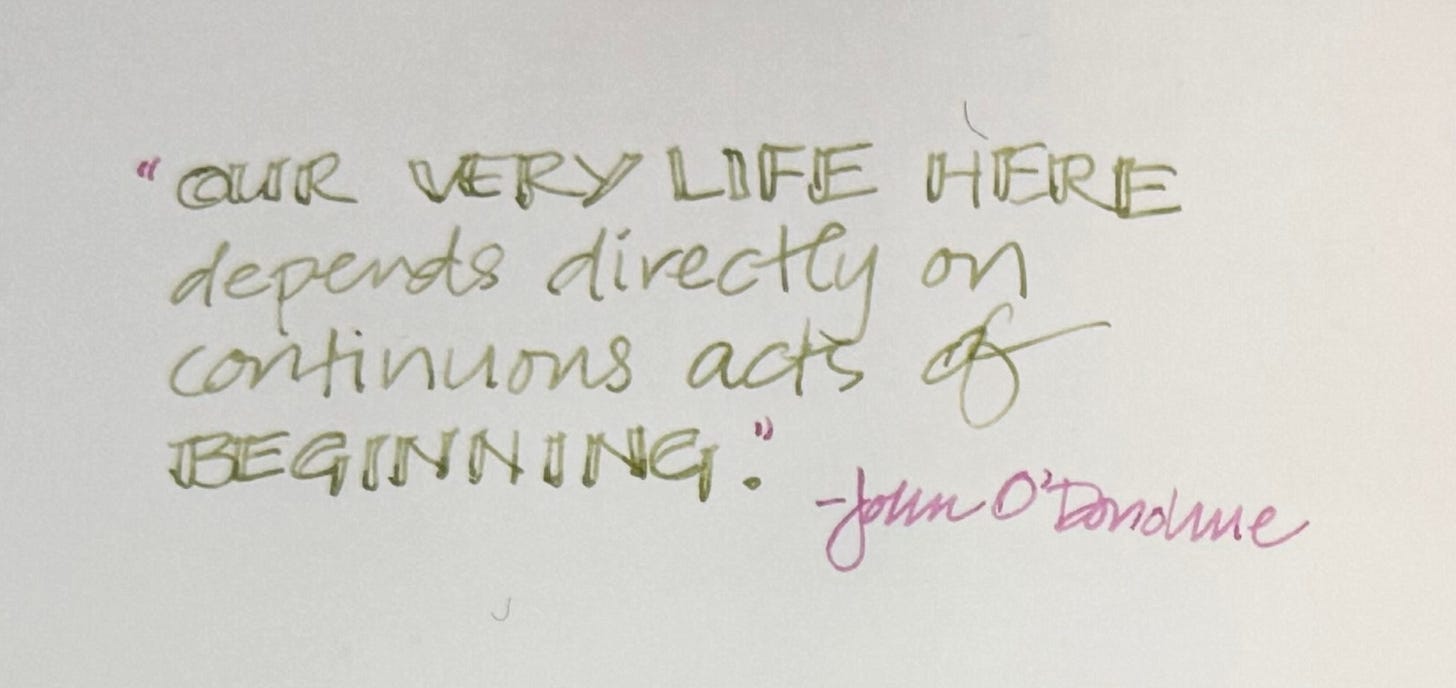 "OUR VERY LIFE HERE
depends directly on
continuous acts of
BEGINNING."
-John O'Donohue